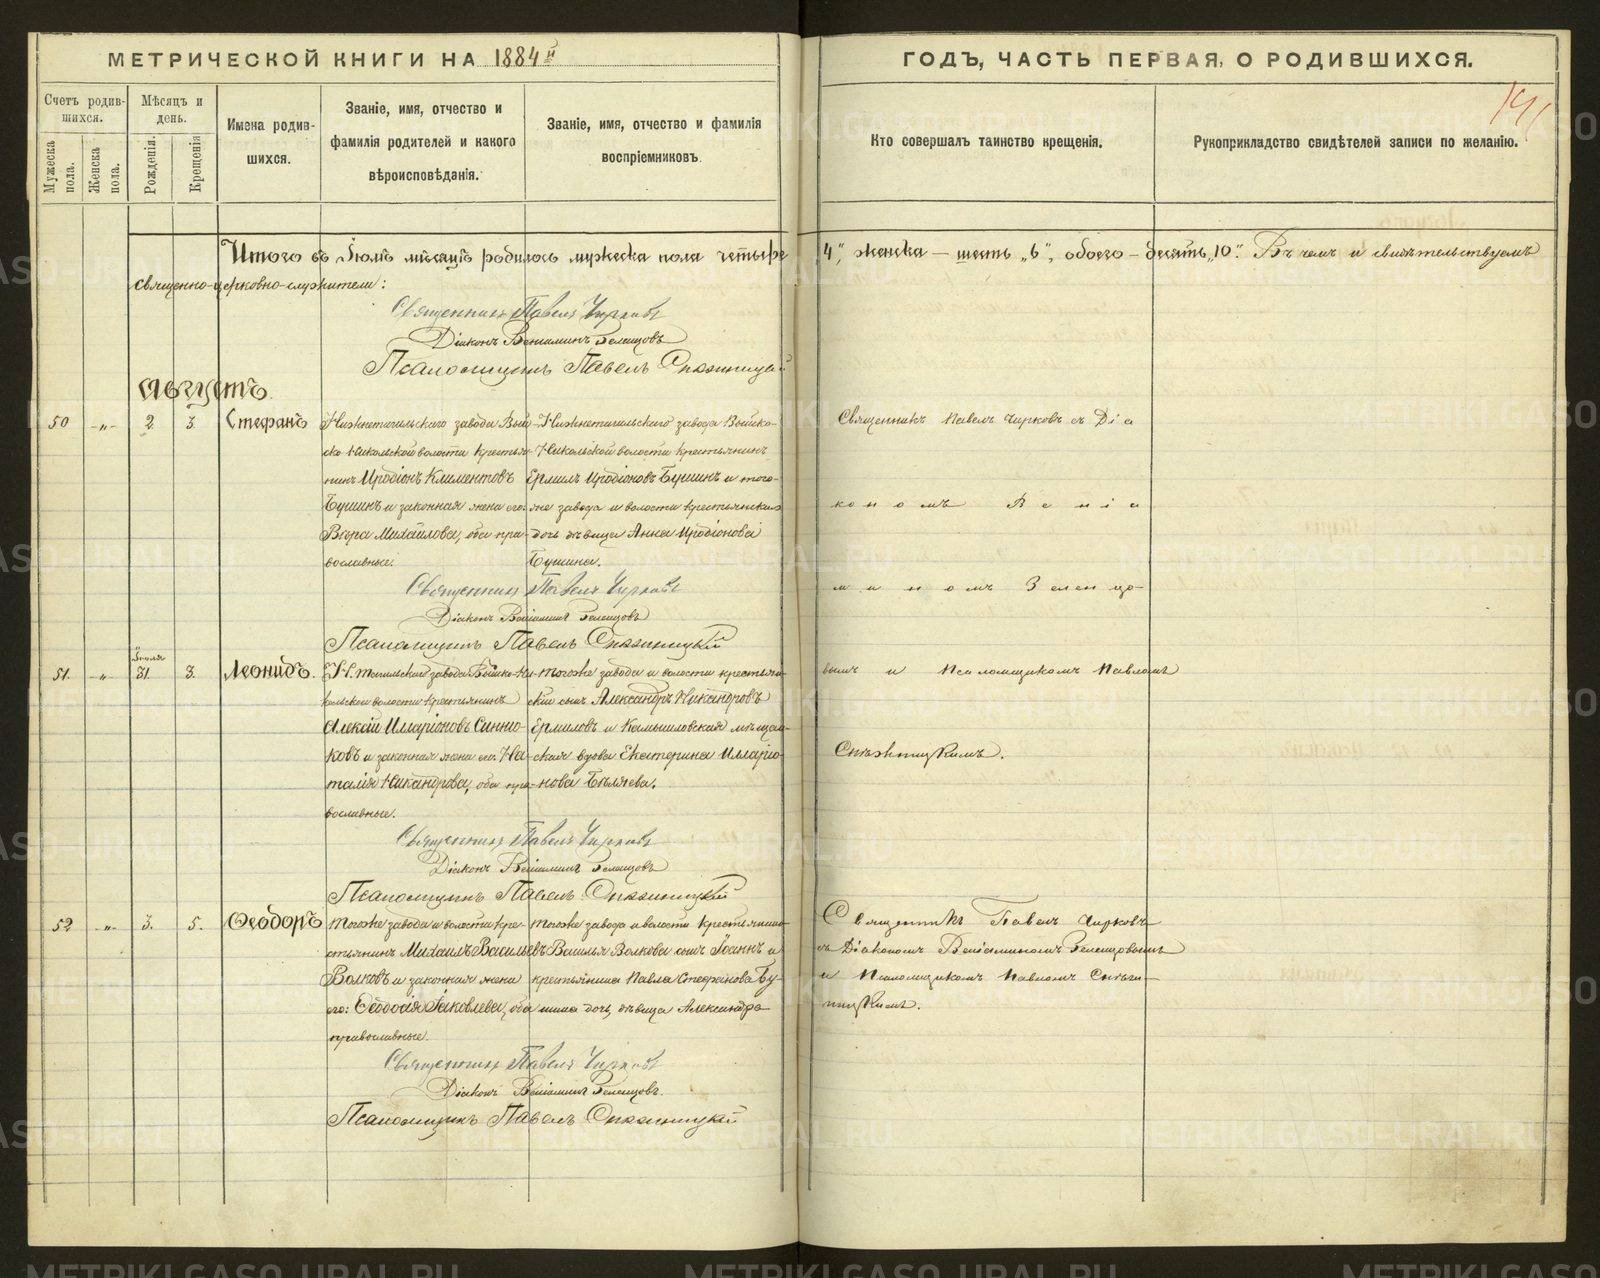 МЕТРИЧЕСКОЙ КНИГИ НА 1884й
ГОДЪ, ЧАСТЬ ПЕРВАЯ, О РОДИВШИХСЯ.
Счетъ родившихся.
Мужеска пола.
Женска пола.
Мѣсяцъ и день.
Рожденія.
Крещенія
Имена родившихся.
Званіе, имя, отчество и
фамилія родителей и какого
вѣроисповѣданія.
Званіе, имя, отчество и фамилія
воспріемниковъ.
Кто совершалъ таинство крещенія.
Рукоприкладство свидѣтелей записи по желанію.
Итого въ Іюлѣ мѣсяцѣ родилось мужеска пола четыре
4", женска – шесть „6", обоего – десять „10". Въ чемъ и свидѣтельствуемъ
священно-церковно-служители:
Священникъ Павелъ Чирковъ
Діаконъ Веніаминъ
Псаломщикъ Павелъ
Августъ.
50 -"- 2. 3. Стефанъ
Нижнетагильскаго завода Вый-
ско-Никольской волости крестья-
нинъ Иродіонъ Климентовъ
Бушинъ и законная жена его:
Вѣра Михайлова, оба пра-
вославные.
Нижнетагильскаго завода Выйско-
Никольской волости крестьянинъ
Ермилъ Иродіоновъ Бушинъ и того-
же завода и волости крестьянская
дочь дѣвица Анна Иродіонова
Бушина.
Священникъ Павелъ Чирковъ съ Діа
кономъ Веніа
миномъ Зеленцо-
вымъ и Псаломщикомъ Павломъ
Священникъ Павелъ Чирковъ
Діаконъ Веніаминъ
Псаломщикъ Павелъ
51. -"- Іюля 31. 3. Леонидъ.
Н. Тагильскаго завода Выйско-Ни-
кольской волости крестьянинъ
Алексѣй Илларіоновъ Синию-
ковъ и законная жена его: На-
талія Никандрова, оба пра-
вославные.
тогоже завода и волости крестьян-
скій сынъ Александръ Никандровъ
Ермиловъ и Камышловская мѣщан-
ская вдова Екатерина Илларіо-
нова Бѣляева.
Священникъ Павелъ Чирковъ
Діаконъ Веніаминъ
Псаломщикъ Павелъ
52 -"- 3. 5. Ѳеодоръ
тогоже завода и волости кре-
стьянинъ Михаилъ Васильевъ
Волковъ и законная жена
его: Ѳеодосія Іаковлева, оба
православные.
тогоже завода и волости крестьянина
Василья Волкова сынъ Іоаннъ и
крестьянина Павла Стефанова Бу-
шина дочь, дѣвица Александра
Священникъ Павелъ Чирковъ
съ Діакономъ Веніаминомъ Зеленцовымъ
и Псаломщикомъ Павломъ
Священникъ Павелъ Чирковъ
Діаконъ Веніаминъ
Псаломщикъ Павелъ
METRIKI.GASO-URAL.RU